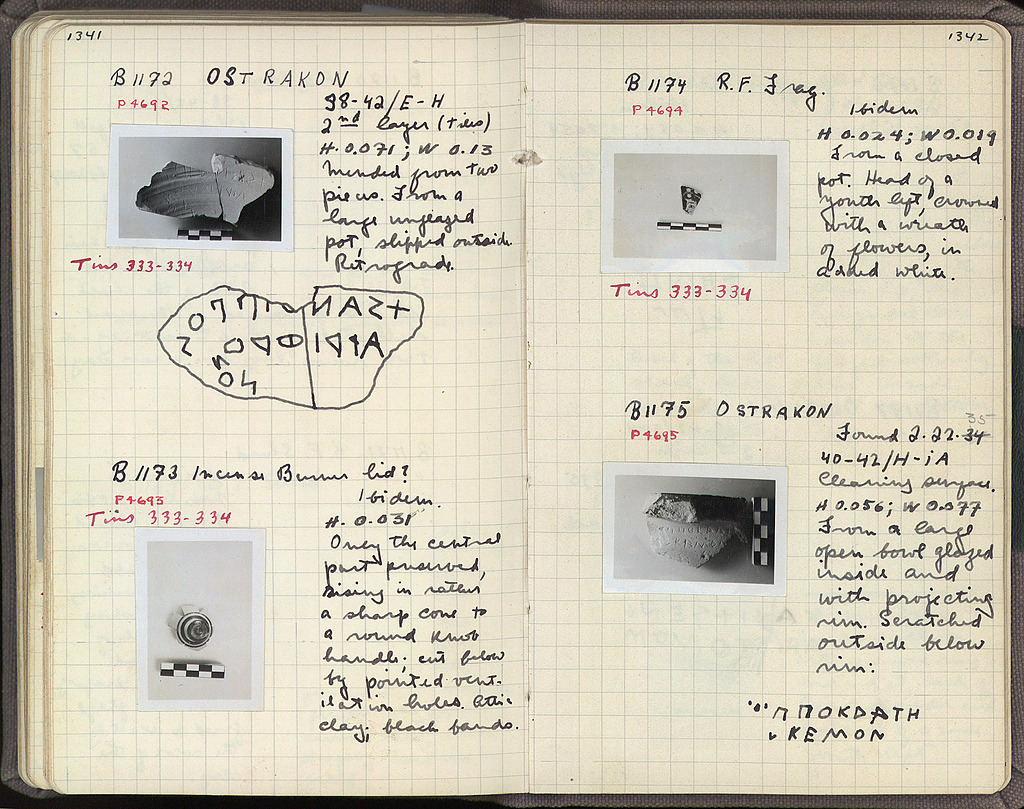 1341
B 1172 OSTRAKON
P 4692
38-42/E-H
2nd layer (tins)
H. 0.071; W 0.13
Mended from two
pieces. From a
large unglazed
pot, slipped outside.
Retrograde.
Tins 333-334
B 1173 Incense Burner lid?
P 4693
Ibidem.
Tins 333-334
H. 0.031
Only the central
part preserved,
rising in rather
a sharp cone to
a round knob
handle; cut below
by pointed vent-
ilation holes. Attic
clay; black bands.
1342
B 1174 R.F. Frag.
P 4694
Ibidem
H 0.024; W 0.019
From a closed
pot. Head of a
youth left, crowned
with a wreath
of flowers, in
added white.
Tins 333-334
B 1175 OSTRAKON
P 4695
35
Found 2.22.34
40-42/H-IA
Cleaning surface.
H 0.056; W 0.077
From a large
open bowl glazed
inside and
with projecting
rim. Scratched
outside below
rim:
ΠΠΟΚΡΑΤΗ
ΚΕΜΟΝ